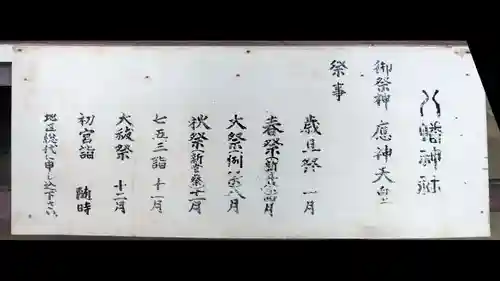 八幡神社
御祭神 應神天皇
祭事
歳旦祭 一月
春祭(新年祭)四月
大祭(例祭)八月
秋祭(新嘗祭)十一月
七五三詣 十一月
大祓祭 十二月
初宮詣 随時
地区総代に申し込下さい。